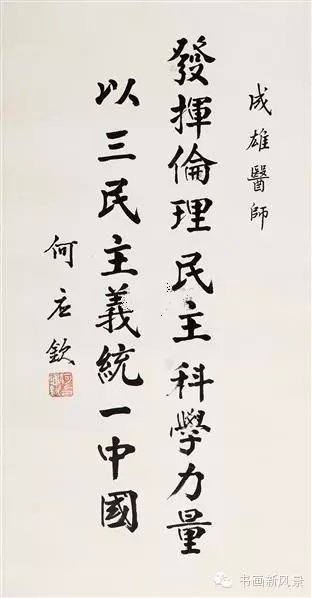 成雄醫師
發揮倫理民主科學力量
以三民主義統一中國
何应欽
书画新风景